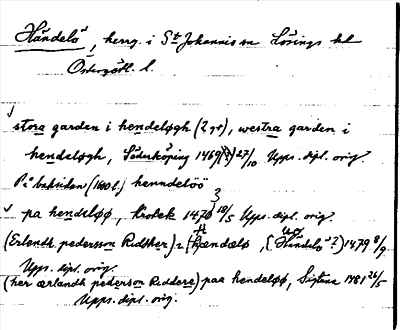 Händelö, herrg. i S:t Johannis sn Lösings hd
Östergötl. l.
stora garden i hendeløgh (2 gr), westra garden i
hendeløgh, Söderköping 1469(?) 27/10 Upps. dipl. orig.
På baksidan (1600 t.) henndelöö
pa hendeløø, Krokek 1470 18/5 Upps. dipl. orig.
(Erlandh pedersson Ridther) i hændælø, (Händelö ?) 1479 8/9
Upps. dipl. orig.
(her ærlandh pederson Riddere) paa hendeløø, Sigtuna 1481 26/5
Upps. dipl. orig.